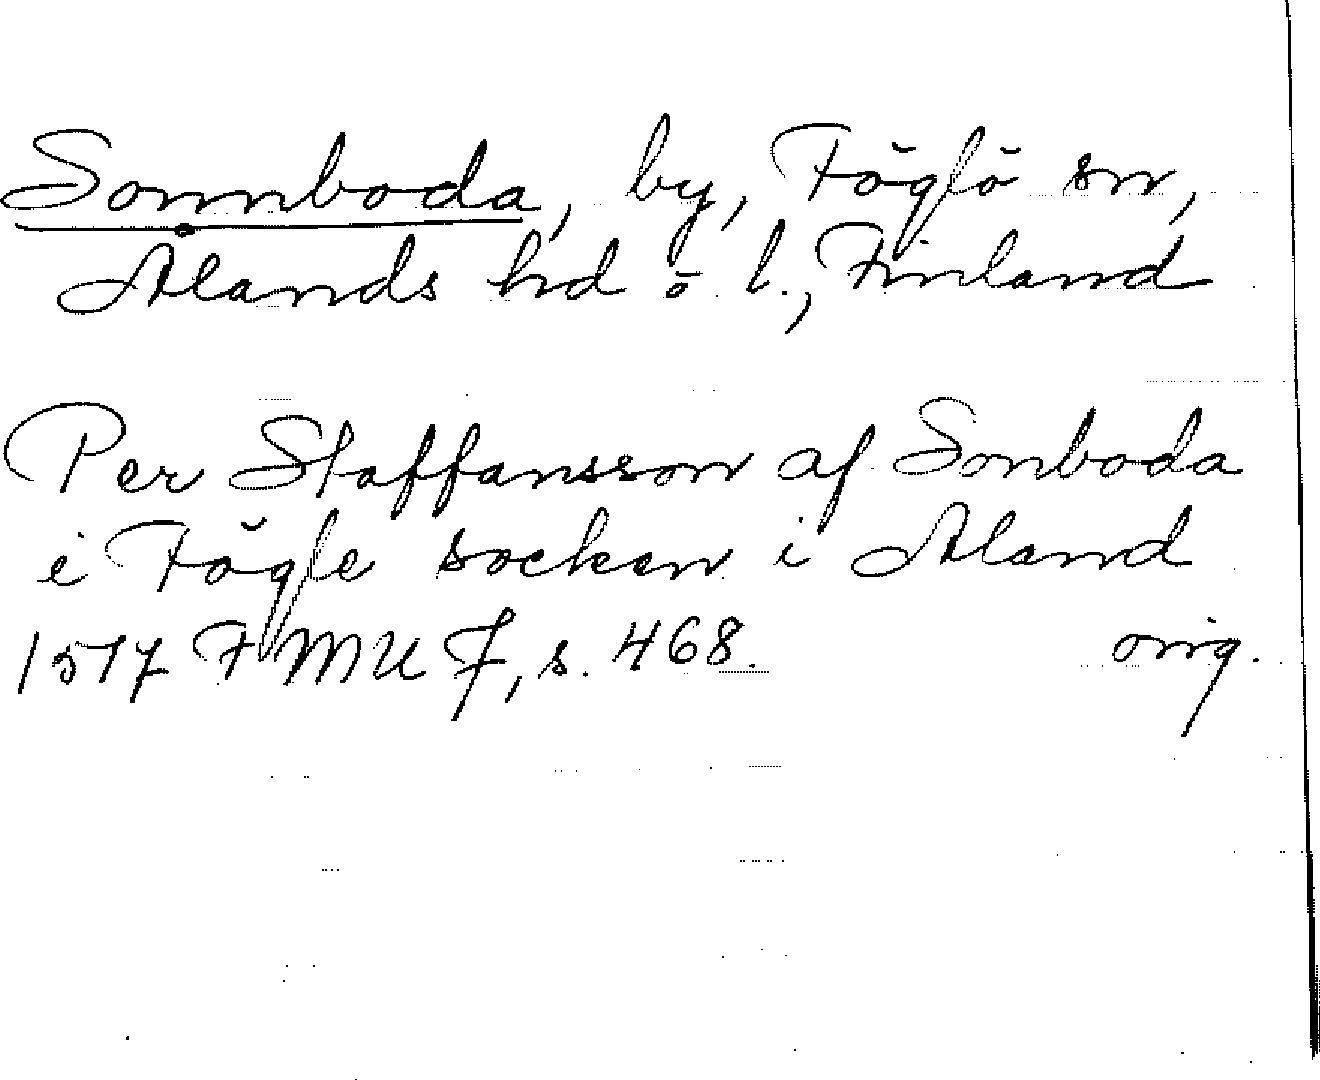 Sonnboda, by, Föglö sn,
Ålands hd o. l., Finland
Per Staffansson af Sonboda
i Fögle socken i Åland
1517 FMU 7, s. 468. orig.